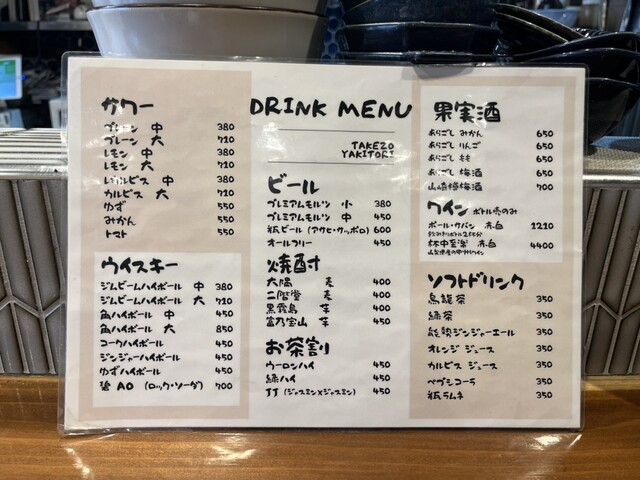 サワー
プレーン 中 380
プレーン 大 710
レモン 中 380
レモン 大 710
カルピス 中 380
カルピス 大 710
ゆず 550
みかん 550
トマト 550
ウイスキー
ジムビームハイボール 中 380
ジムビームハイボール 大 710
角ハイボール 中 450
角ハイボール 大 850
コークハイボール 450
ジンジャーハイボール 450
ゆずハイボール 450
碧 AO (ロック・ソーダ) 700
DRINK MENU
TAKEZO
YAKITORI
ビール
プレミアムモルツ 小 380
プレミアムモルツ 中 450
瓶ビール (アサヒ・サッポロ) 600
オールフリー 450
焼酎
大隅 麦 400
二階堂 麦 400
黒霧島 芋 400
富乃宝山 芋 450
お茶割り
ウーロンハイ 450
緑ハイ 450
JJ (ジャスミン×ジャスミン) 450
果実酒
あらごし みかん 650
あらごし りんご 650
あらごし もも 650
あらごし 梅酒 650
山崎樽梅酒 700
ワイン ボトル売のみ
ポール・サパン 赤白 1210
飲みきりボトル2杯分
杯中至楽 赤白 4400
ソフトドリンク
烏龍茶 350
緑茶 350
能勢ジンジャーエール 350
オレンジ ジュース 350
カルピス ジュース 350
ペプシコーラ 350
瓶ラムネ 350